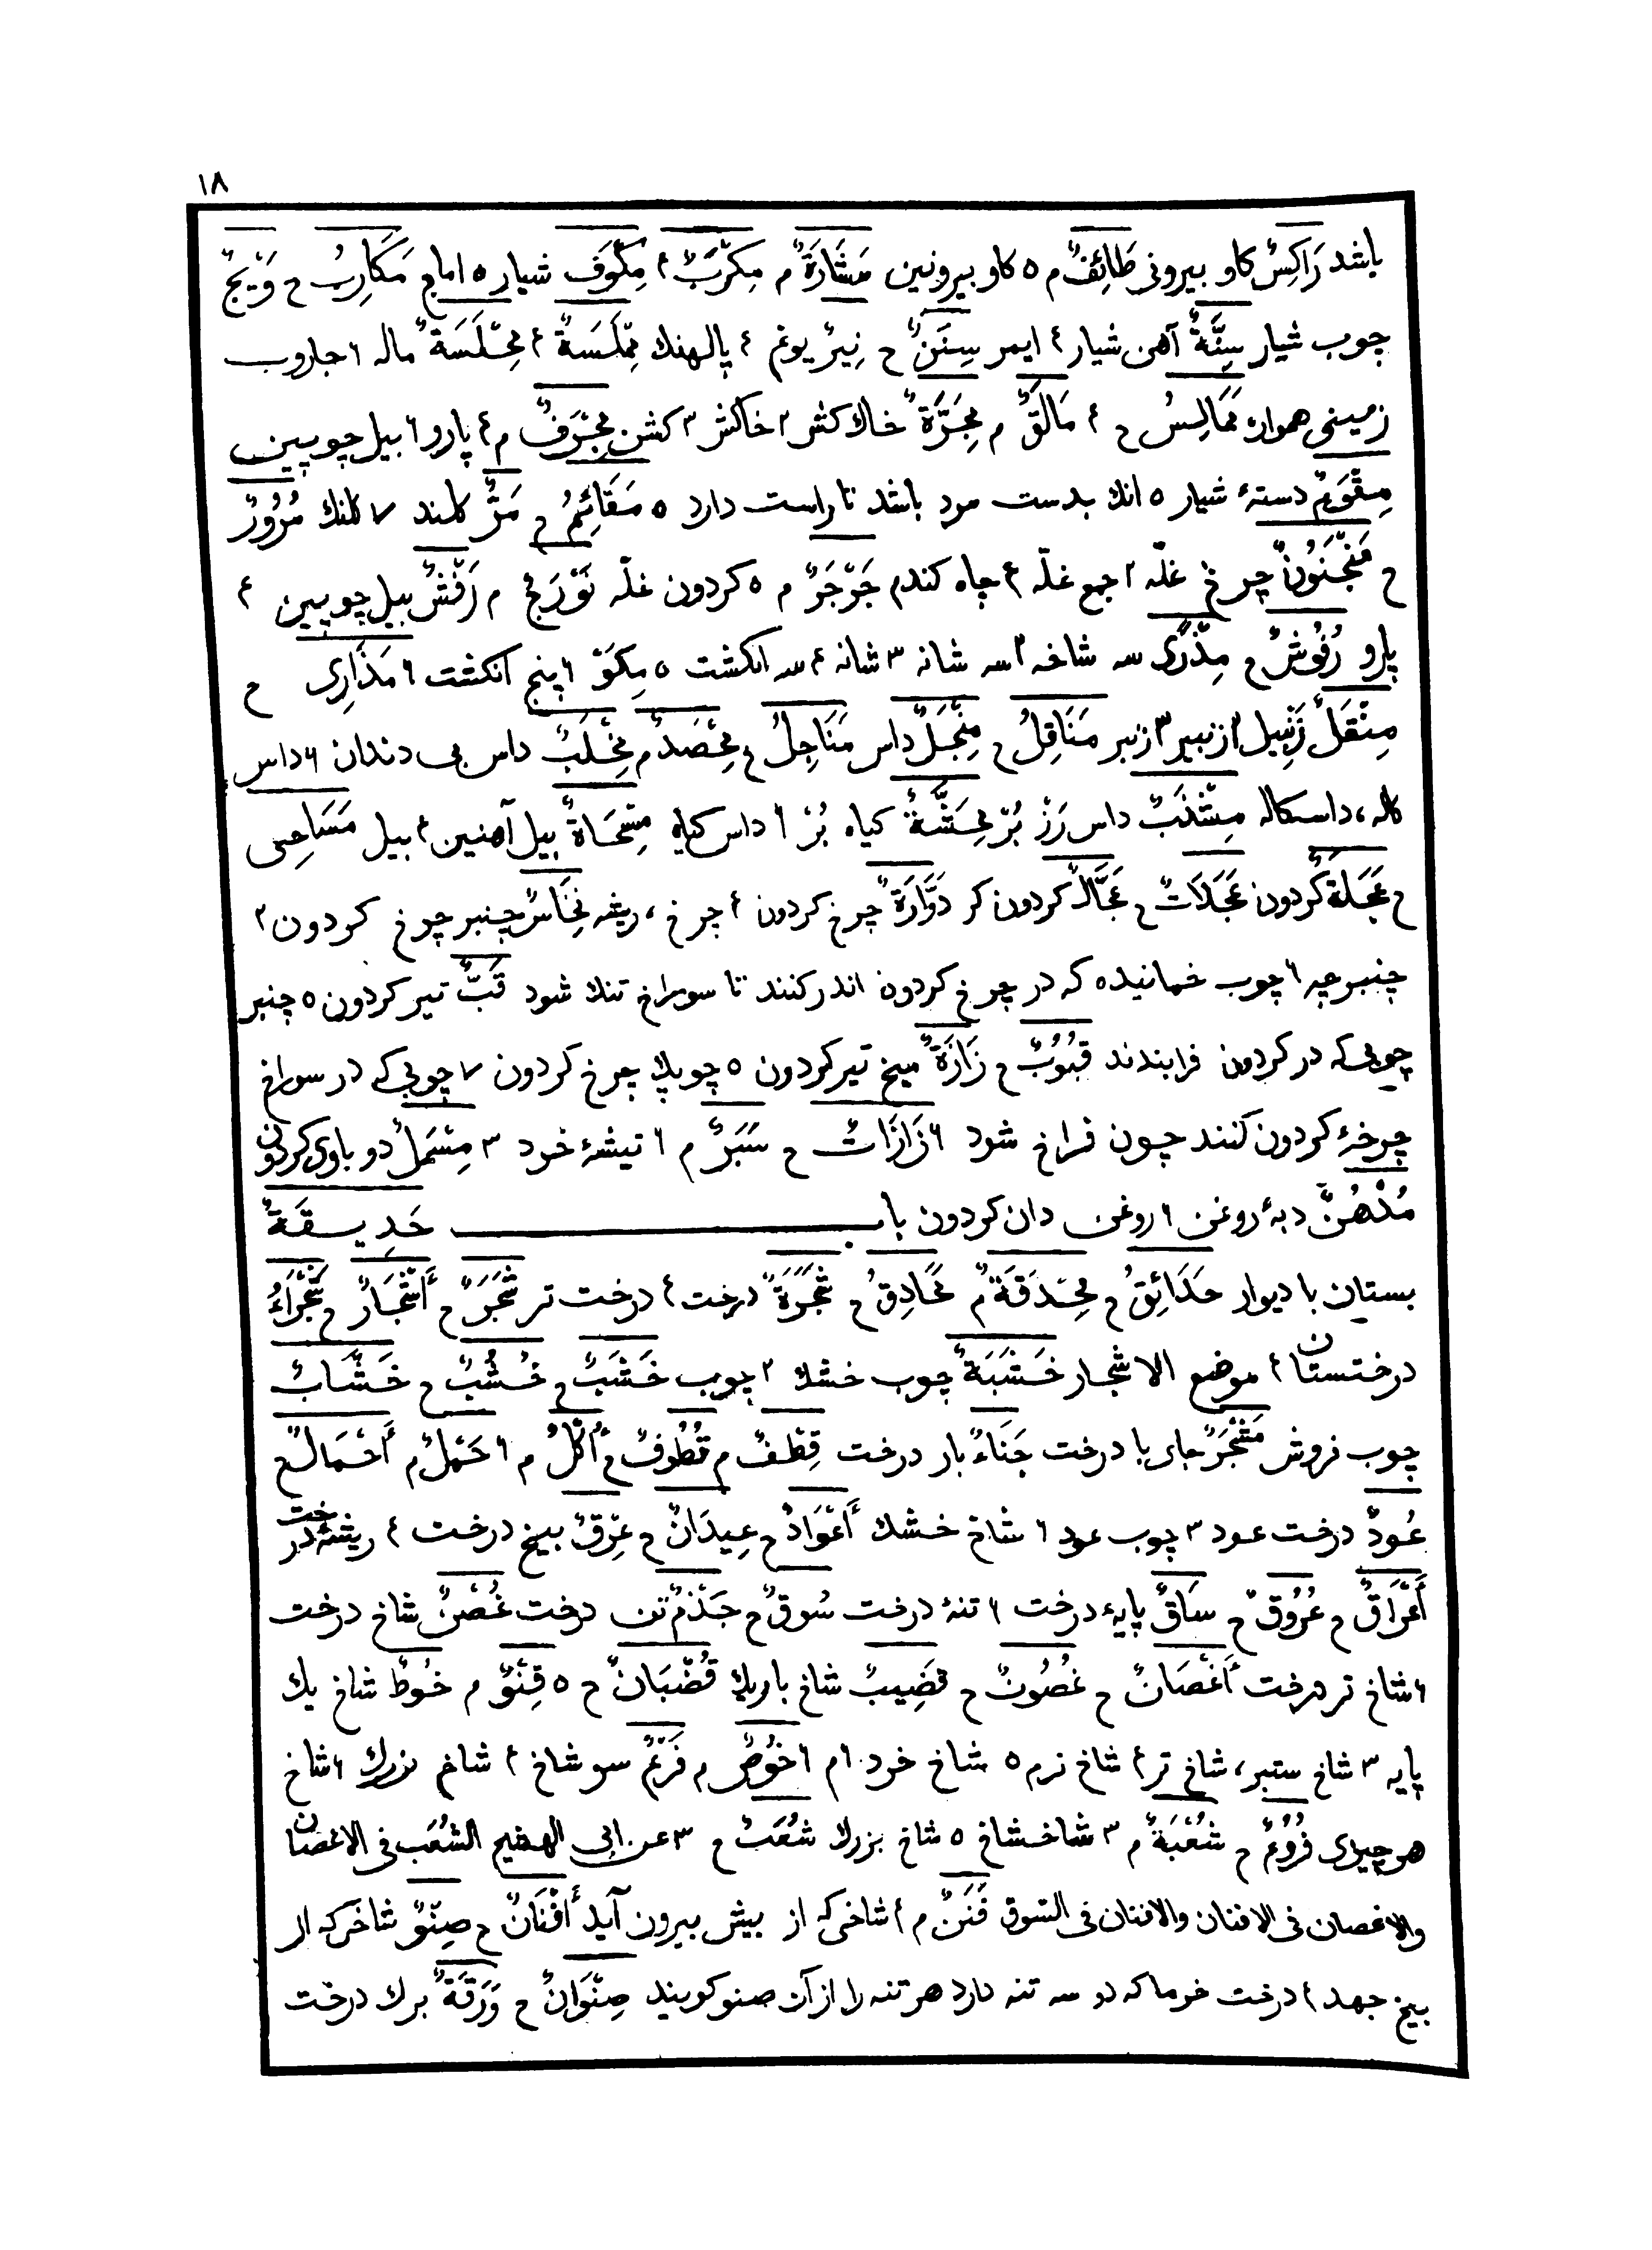 ١٨
باشد رَاكِسٌ كاو بيرونى طَائِفٌ م ٥ كاو بيرونين مَشَارَةٌ م مِكْرَبٌ ٤ مِكْوَف شيار ٥ اماج مَكَارِبُ ح وَيْجٌ
چوب شيار سِنَّةٌ آهن شيار ٤ ايمر سِنَنٌ ح نِيرٌ يوغ ٤ پالهنك مِمْلَسَةٌ ٤ مِجْلَسَةٌ ماله ٦ جاروب
زمينى هموار مَمَالِسُ ح ٤ مَالَقٌ م مِجَرَّةٌ خاك كش ٢ خاكش ٣ كشن مِجْرَفٌ م ٤ پارو ٦ بيل چوبين
مِقْوَمٌ دستهٔ شيار ٥ انك بدست مرد باشد تا راست دارد ٥ مَقَائِمُ ح مَرٌّ كلند ٧ كلنك مُرُورٌ
ح مَنْجَنُونٌ چرخ غلّه ٢ جمع غلّه ٤ چاه كندم جَرْجَرٌ م ٥ كردون غلّه نَوْرَجٌ م رَفْشٌ بيل چوبين ٤
پارو رُفُوشٌ ح مِذْرًى سه شاخه ٢ سه شانه ٣ شانه ٤ سه انكشت ٥ مِكْوَ ٦ پنج انكشت ٦ مَذَارِى ح
مِنْقَلٌ زَنبيل ٢ ازنبير ٣ ازنبر مَنَاقِلُ ح مِنْجَلٌ داس مَنَاجِلُ ح مِحْصَدٌ م مِخْلَبٌ داس بى دندان ٦ داس
كاله ، داسكاله مِشْذَبٌ داس رَزْ بُرْ مِحَشَّةٌ كياه بُرْ ٢ داس كياه مِسْحَاةٌ بيل آهنين ٤ بيل مَسَاحِى
ح عَجَلَةٌ كردون عَجَلَاتٌ ح عَجَّالٌ كردون كر دَوَّارَةٌ چرخ كردون ٤ چرخ ، ريشه نِخَاسٌ چنبر چرخ كردون ٢
چنبرچه ٦ چوب خمانيده كه در چرخ كردون اندر كنند تا سوراخ تنك شود قَبٌّ تير كردون ٥ چنبر
چوبى كه در كردون فرابندند قُبُوبٌ ح زَازَةٌ ميخ تير كردون ٥ چوبك چرخ كردون ٧ چوبى كه در سوراخ
چرخهٔ كردون كنند چون فراخ شود ٦ زَازَاتٌ ح سَبَرٌ م ٦ تيشهٔ خرد ٣ مِسْمَلٌ دو باوى كردون
مُدْهُنٌ دبهٔ روغن ٦ روغن دان كردون باب حَدِيقَةٌ
بستان با ديوار حَدَائِقُ ح مِحْدَقَةٌ م مَحَادِقُ ح شَجَرَةٌ درخت ٤ درخت تر شَجَرٌ ح أَشْجَارٌ ح شَجْرَاءُ
درختستان ٤ موضع الاشجار خَشَبَةٌ چوب خشك ٢ چوب خَشَبٌ ح خُشُبٌ ح خَشَّابٌ
چوب فروش مَشْجَرٌ جاى با درخت جَنَاءٌ بار درخت قِطْفٌ م قُطُوفٌ ح أُكُلٌ م ٦ حَمْلٌ م أَحْمَالٌ ح
عُودٌ درخت عود ٣ چوب عود ٦ شاخ خشك أَعْوَادٌ ح عِيدَانٌ ح عِرْقٌ بيخ درخت ٤ ريشهٔ درخت
أَعْرَاقٌ ح عُرُوقٌ ح سَاقٌ پايهٔ درخت ٦ تنهٔ درخت سُوقٌ ح جَذْمٌ تن درخت غُصْنٌ شاخ درخت
٦ شاخ تر درخت أَغْصَانٌ ح غُصُونٌ ح قَضِيبٌ شاخ باريك قُضْبَانٌ ح ٥ قِنْوٌ م خُوطٌ شاخ يك
پايه ٣ شاخ ستبر ، شاخ تر ٤ شاخ نرم ٥ شاخ خرد ٦ م ٦ خُوصٌ م فَرْعٌ سو شاخ ٤ شاخ بزرك ٦ شاخ
هر چيزى فُرُوعٌ ح شُعْبَةٌ م ٣ شاخشاخ ٥ شاخ بزرك شُعَبٌ ح ٣ عن ابى الهضيم الشُعَب فى الاغصان
والاغصان فى الافنان والافنان فى السوق فَنَنٌ م ٤ شاخى كه از بيش بيرون آيد أَفْنَانٌ ح صِنْوٌ شاخى كه از
بيخ جهد ٤ درخت خرما كه دو سه تنه دارد هر تنه را از آن صنو كويند صِنْوَانٌ ح وَرَقَةٌ برك درخت